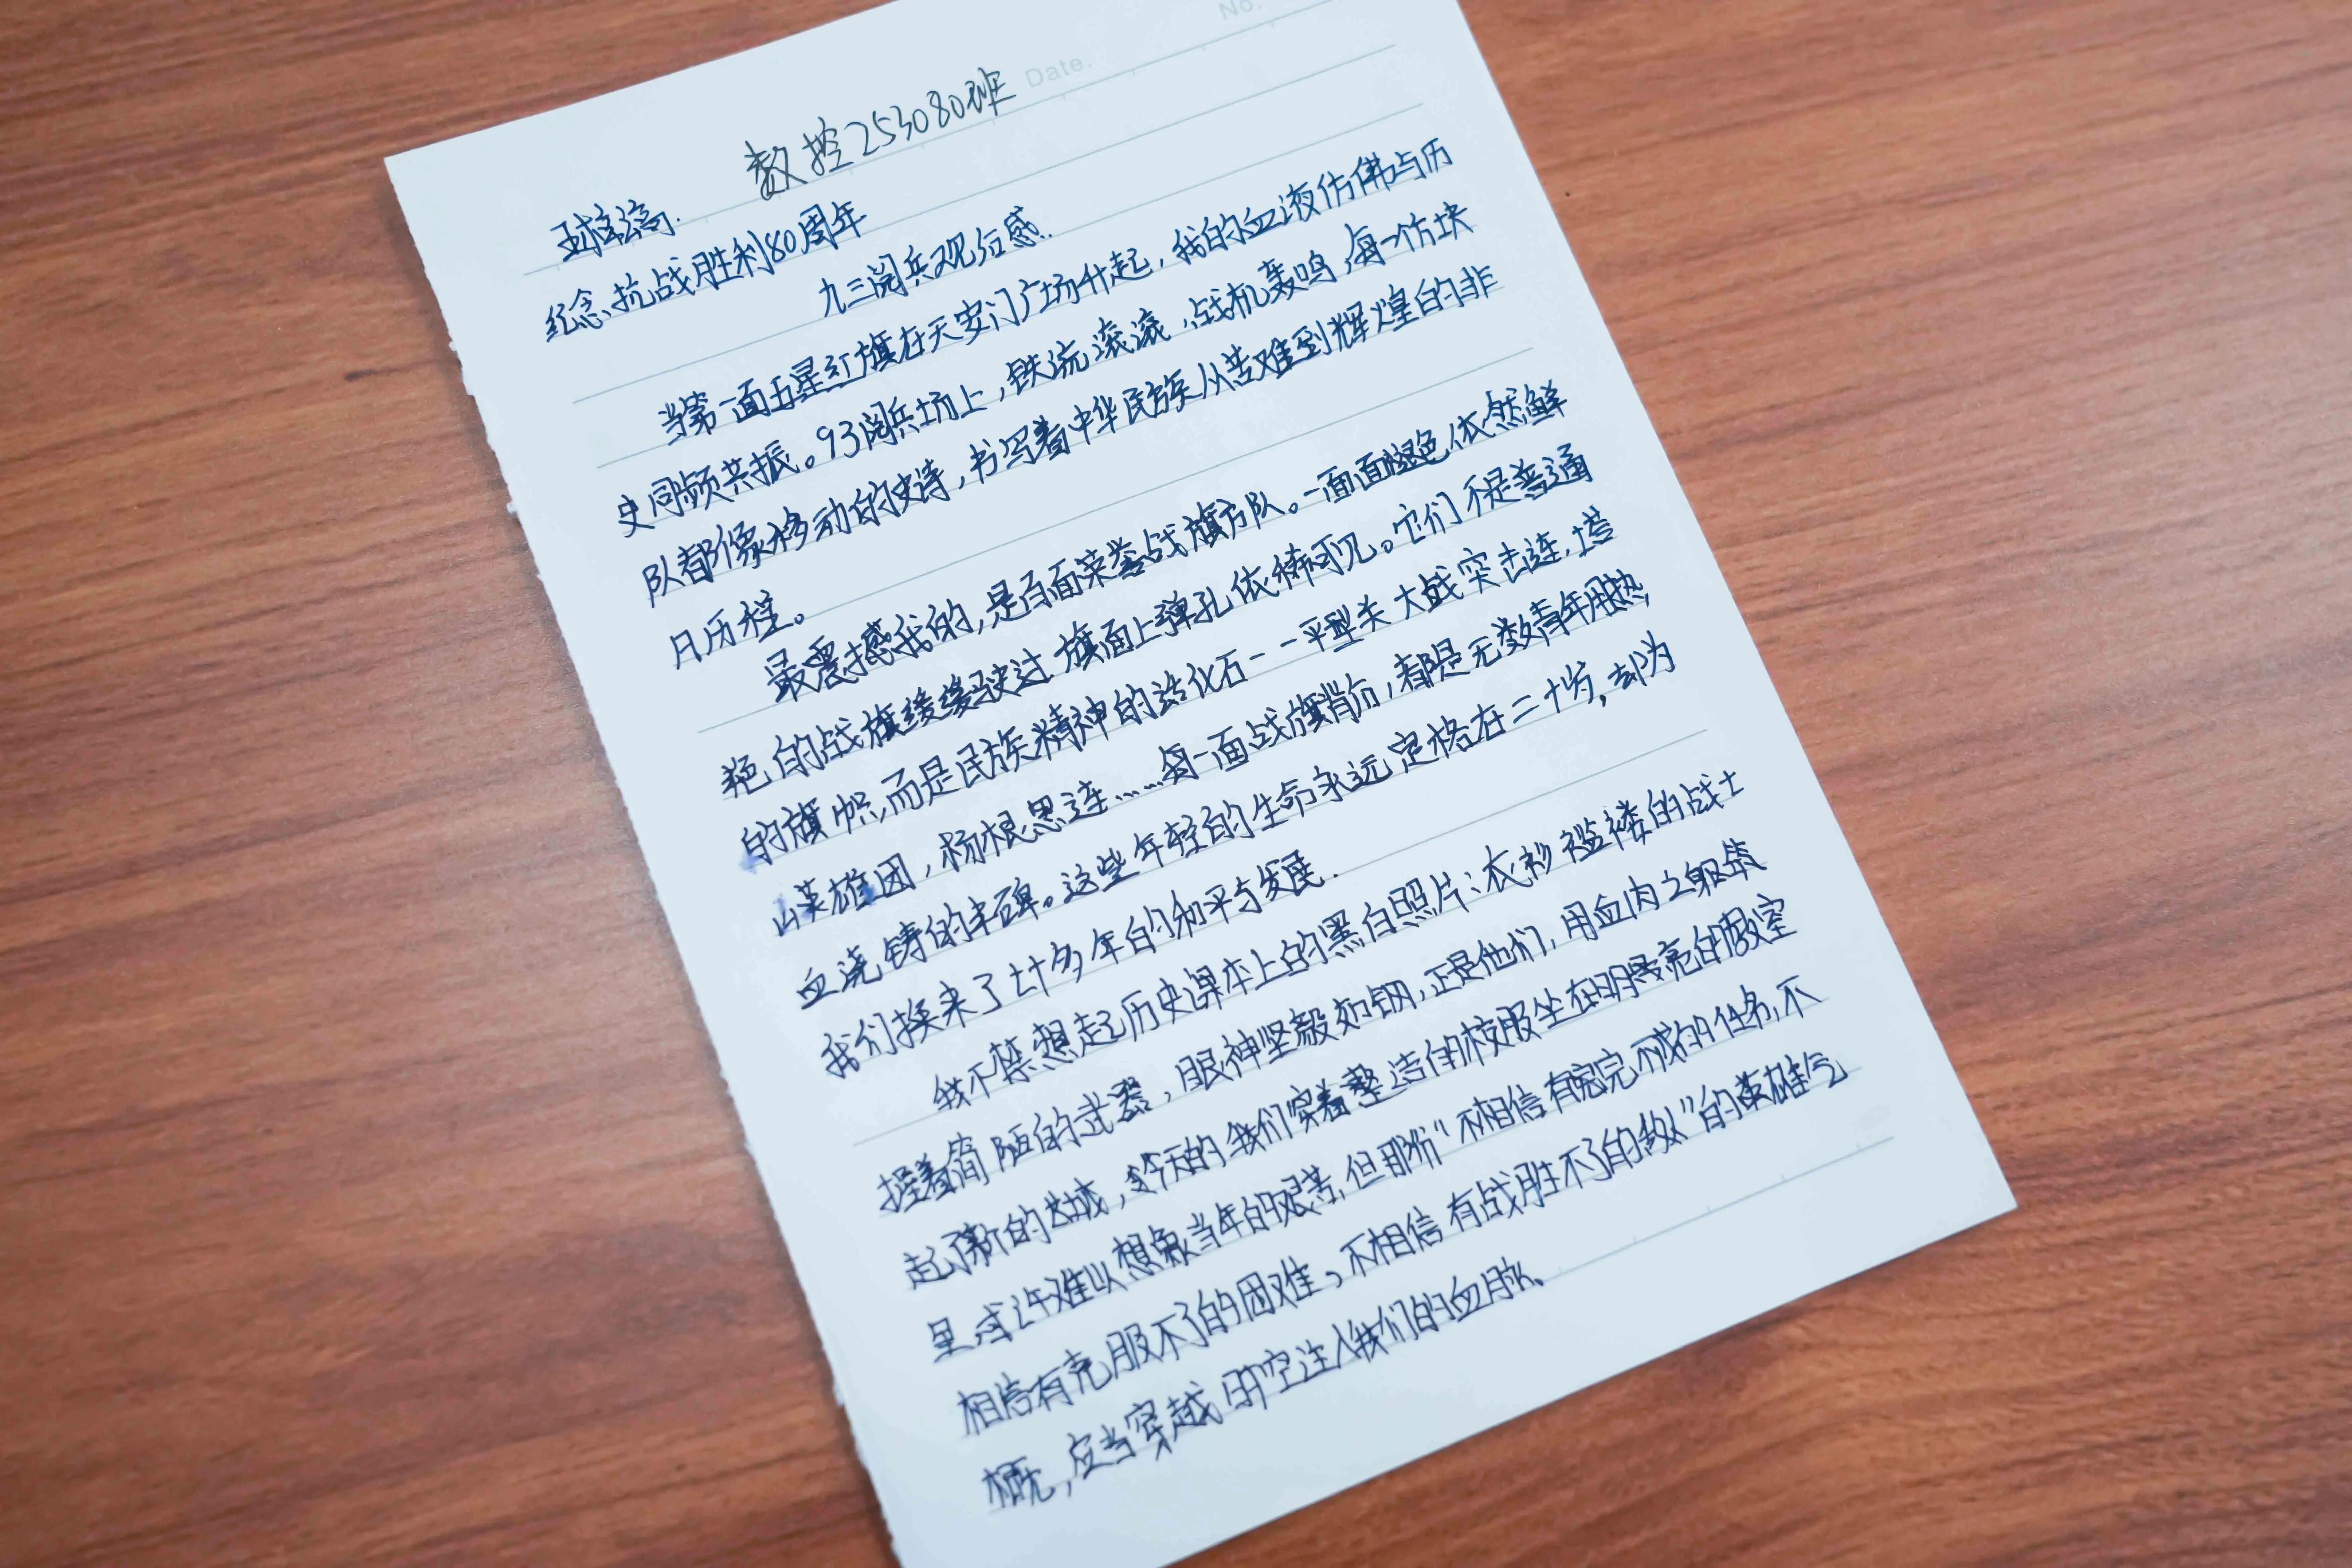 No.
Date.
数控253080班
纪念抗战胜利80周年
九三阅兵观后感.
当第一面五星红旗在天安门广场升起，我的血液仿佛与历
史同频共振。93阅兵场上，铁流滚滚，战机轰鸣，每一个方块
队都像移动的史诗，书写着中华民族从苦难到辉煌的非
凡历程。
最震撼我的，是百面荣誉战旗方队。一面面褪色依然鲜
艳的战旗缓缓驶过，旗面上弹孔依稀可见。它们不是普通
的旗帜，而是民族精神的活化石--平型关大战突击连，塔
山英雄团，杨根思连……每一面战旗背后，都是无数青年用热
血浇铸的丰碑。这些年轻的生命永远定格在二十岁，却为
我们换来了七十多年的和平与发展.
我不禁想起历史课本上的黑白照片：衣衫褴褛的战士
握着简陋的武器，眼神坚毅如钢，正是他们，用血肉之躯筑
起了新的长城，今天的我们穿着整洁的校服坐在明亮的教室
里，或许难以想象当年的艰苦，但那份"不相信有完不成的任务，不
相信有克服不了的困难，不相信有战胜不了的敌人"的英雄气
概，应当穿越时空注入我们的血脉。